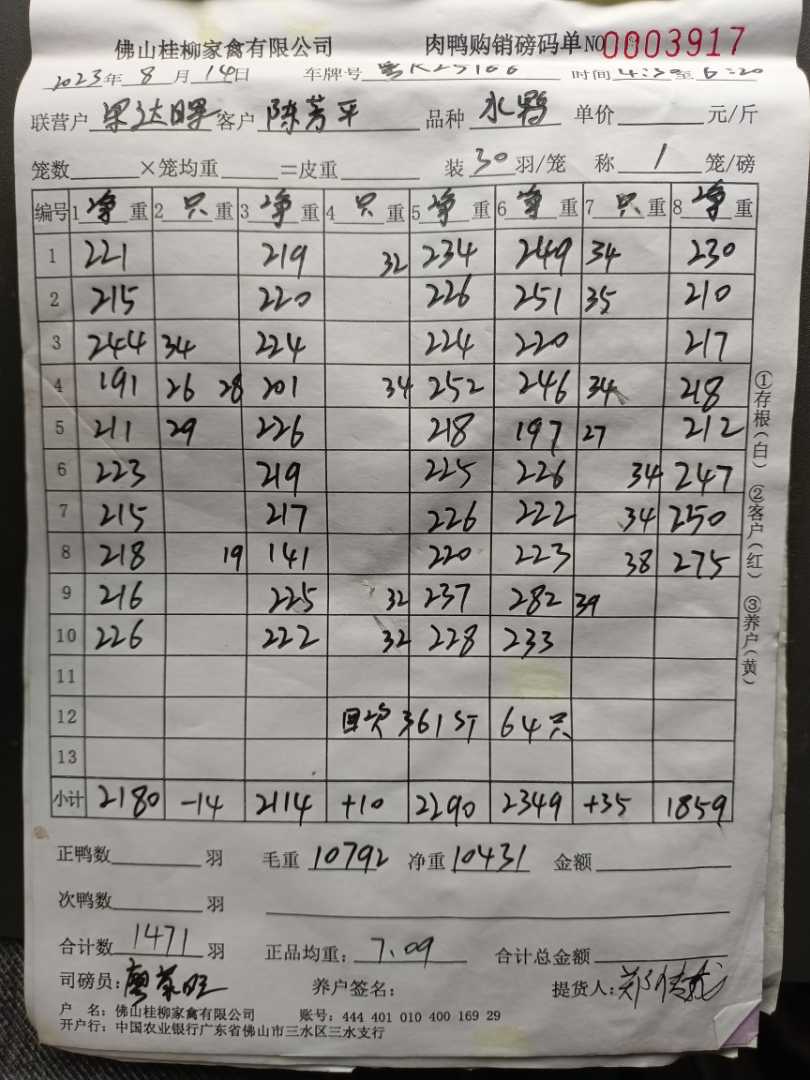 佛山桂柳家禽有限公司 肉鸭购销磅码单 NO 0003917
2023年 8 月 14日 车牌号 粤K25166 时间 4:30至 6:20
联营户 客户 陈芳平 品种 水鸭 单价 元/斤
笼数 ×笼均重 =皮重 装 30 羽/笼 称 1 笼/磅
编号 1 净 重 2 只 重 3 净 重 4 只 重 5 净 重 6 净 重 7 只 重 8 净 重
1 221 219 32 234 249 34 230
2 215 220 226 251 35 210
3 244 34 224 224 220 217
4 191 26 28 201 34 252 246 34 218
5 211 29 226 218 197 27 212
6 223 219 225 226 34 247
7 215 217 226 222 34 250
8 218 19 141 220 223 38 275
9 216 225 32 237 282 39
10 226 222 32 228 233
11
12 回次 361斤 64只
13
小计 2180 -14 2114 +10 2290 2349 +35 1859
正鸭数 羽 毛重 10792 净重 10431 金额
次鸭数 羽
合计数 1471 羽 正品均重: 7.09 合计总金额
司磅员: 养户签名: 提货人:
户 名: 佛山桂柳家禽有限公司 账号: 444 401 010 400 169 29
开户行: 中国农业银行广东省佛山市三水区三水支行
①存根(白) ②客户(红) ③养户(黄)